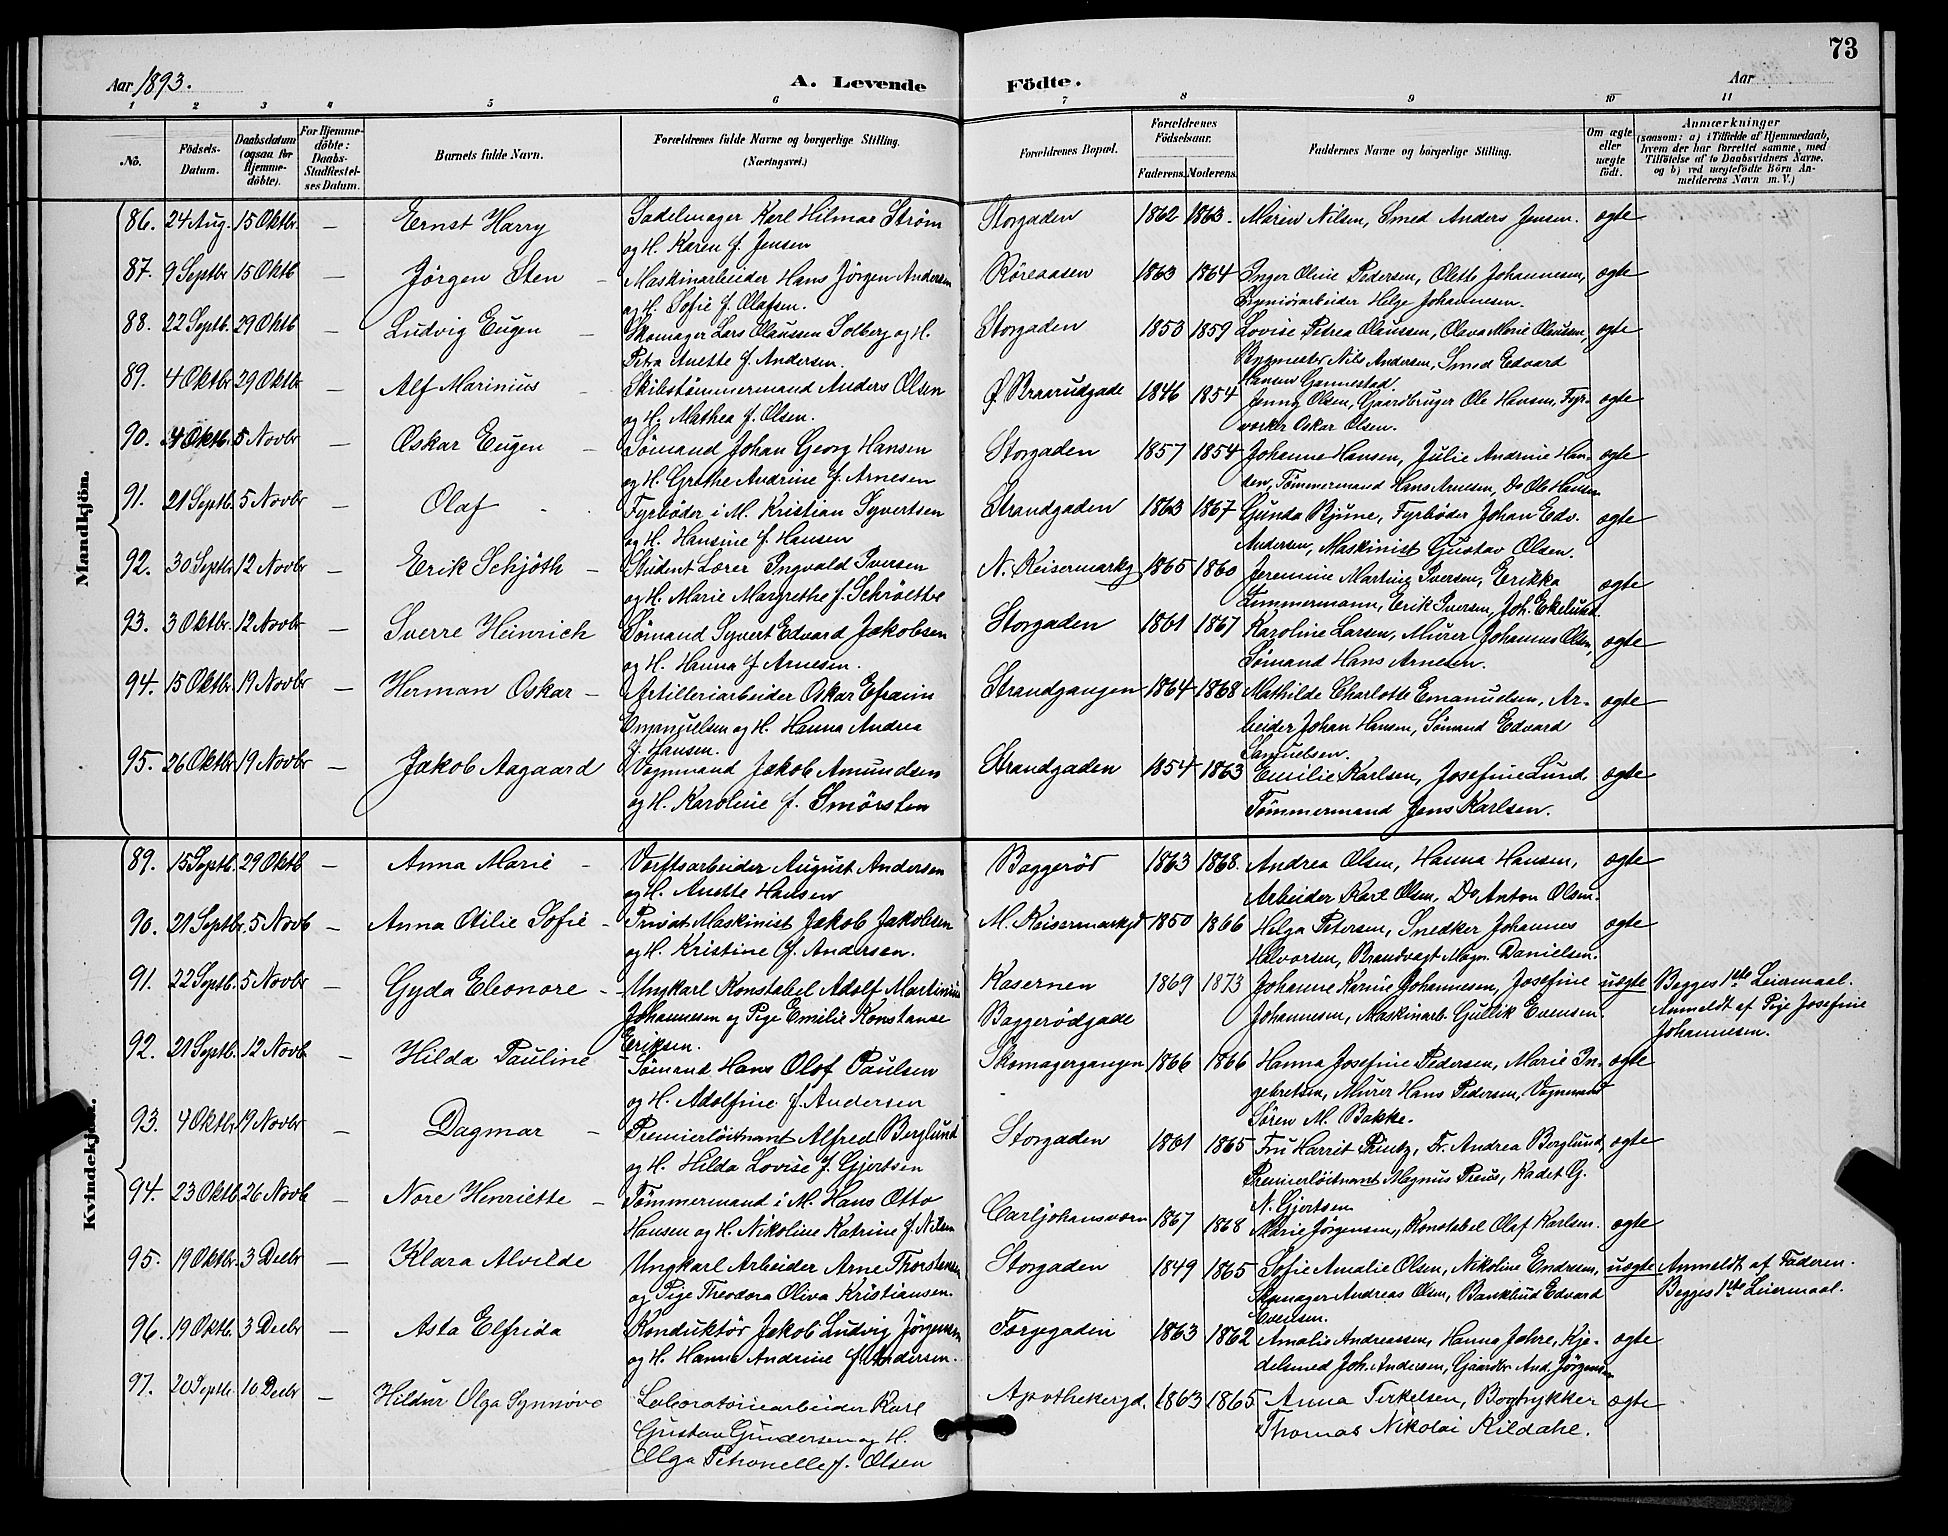 73
Aar 1893. A. Levende Födte. Aar
1 2 3 4 5 6 7 8 9 10 11
No. Födsels-Datum. Daabsdatum (ogsaa for Hjemme-döbte). For Hjemme-döbte: Daabs-Stadfæstel-ses Datum. Barnets fulde Navn. Forældrenes fulde Navne og borgerlige Stilling. (Næringsvei.) Forældrenes Bopæl. Forældrenes Födselsaar. Faderens. Moderens. Faddernes Navne og borgerlige Stilling. Om ægte eller uægte födt. Anmærkninger (saasom: a) i Tilfælde af Hjemmedaab, hvem der har forrettet samme, med Tilföielse af to Daabsvidners Navne, og b) ved uægtefödte Börn An-melderens Navn m. V.)
Mandkjön.
86. 24 Aug. 15 Oktbr. — Ernst Harry Sadelmager Karl Hilmar Strøm Storgaden 1862 1863. Maren Nilsen, Smed Anders Jensen. ægte
og H. Karen f. Jensen
87. 9 Septbr 15 Oktb — Jörgen Sten — Maskinarbeider Hans Jörgen Andersen Röreaasen 1863 1864 Inger Oline Pedersen, Olette Johannesen, ægte
og H. Sofie f. Olafsen. Johannesen.
88. 22 Septb. 29 Oktb — Ludvig Eugen — Skomager Lars Olaussen Solberg og H. Storgaden 1853 1859 Lovise Petrea Olaussen, Olava Marie Olaussen, ægte
Petra Anette f. Andersen. Nils Andersen, Smed Edvard
Hansen Gannestad.
89. 4 Oktbr 29 Oktbr — Alf Marinius — Skibstömmermand Anders Olsen Ø Braarudgade 1846 1854 Jenny Olsen, Gaardbruger Ole Hansen, Fyr- ægte
og H. Mathea f. Olsen. værker Oskar Olsen.
90. 4 Oktb. 5 Novbr — Oskar Eugen — Sömand Johan Georg Hansen Storgaden 1857 1854 Johanne Hansen, Julie Andrine Han- ægte
og H. Grethe Andrine f. Arnesen sen, Tömmermand Hans Arnesen, Do Ole Hansen
91. 21 Septb. 5 Novbr — Olaf Fyrböder i M. Kristian Syvertsen Strandgaden 1863 1867 Gunda Bjune, Fyrböder Johan Edv. ægte
og H. Hansine f. Hansen Andersen, Maskinist Gustav Olsen.
92. 30 Septbr. 12 Novbr — Erik Schjöth — Student Lærer Ingvald Iversen N. Keisermarkg 1865 1860 Jeremine Martine Iversen, Erikka ægte
og H. Marie Margrethe f. Schröetter Zimmermann, Erik Iversen, Joh. Ekelund.
93. 3 Oktbr. 12 Novbr — Sverre Heinrich Sömand Syvert Edvard Jakobsen Storgaden 1861 1867 Karoline Larsen, Murer Johannes Olsen, ægte
og H. Hanna f. Arnesen. Sömand Hans Arnesen.
94. 15 Oktbr. 19 Novbr — Herman Oskar — Artilleriarbeider Oskar Efraim Strandgangen 1864 1868 Mathilde Charlotte Emanuelsen, Ar- ægte
Emanuelsen og H. Hanna Andrea beider Johan Hansen, Sömand Edvard
f. Hansen. Samuelsen.
95. 26 Oktbr 19 Novbr — Jakob Aagaard Vognmand Jakob Amundsen Strandgaden 1854 1863 Emilie Karlsen, Josefine Lund ægte
og H. Karoline f. Smörsten Tömmermand Jens Karlsen.
Kvindekjön.
89. 15 Septb. 29 Oktb — Anna Marie — Verftsarbeider August Andersen Baggeröd 1863 1868. Andrea Olsen, Hanna Hansen, ægte
og H. Anette Hansen Arbeider Karl Olsen, Do Anton Olsen.
90. 21 Septbr. 5 Novb — Anna Otilie Sofie — Privat Maskinist Jakob Jakobsen M. Keisermarkgd 1850 1866 Helga Petersen, Snedker Johannes ægte
og H. Kristine f. Andersen. Halvorsen, Brandvagt Magn. Danielsen.
91. 22 Septb. 5 Novbr — Gyda Eleonore — Ungkarl Konstabel Adolf Martinius Kasernen 1869 1873 Johanne Karine Johannesen, Josefine uægte Begges 1ste Leiermaal.
Johannesen og Pige Emilie Konstanse Baggerödgade Johannesen, Maskinarb. Gullik Evensen. Anmeldt af Pige Josefine
Eriksen. Johannesen.
92. 21 Septb. 12 Novb — Hilda Pauline — Sömand Hans Olaf Paulsen Skomagergangen 1866 1866 Hanna Josefine Pedersen, Marie In- ægte
og H. Adolfine f. Andersen gebretsen, Murer Hans Pedersen, Vognmand
Sören M. Bakke.
93. 4 Oktbr 19 Novbr — Dagmar — Premierlöitnant Alfred Berglund Storgaden 1861 1865 Fru Harrit Printz, Fr. Andrea Berglund, ægte
og H. Hilda Lovise f. Gjertsen Premierlöitnant Magnus Preus, Kadet G.
N. Gjertsen
94. 23 Oktb. 26 Novb — Nore Henriette — Tömmermand i M. Hans Otto Carljohansværn 1867 1868 Marie Jörgensen, Konstabel Olaf Karlsen. ægte
Hansen og H. Nikoline Katrine f. Nilsen
95. 19 Oktbr. 3 Decbr — Klara Alvilde Ungkarl Arbeider Arne Thorstensen Storgaden 1849 1865 Sofie Amalie Olsen, Nikoline Endresen, uægte Anmeldt af Faderen.
og Pige Theodora Oliva Kristiansen. Skomager Andreas Olsen, Edvard Begges 1ste Leiermaal.
Evensen.
96. 19 Oktb. 3 Decbr — Asta Elfrida Konduktör Jakob Ludvig Jörgensen Torgegaden 1863 1862 Amalie Andreassen, Hanna Johre, Kje- ægte
og H. Hanna Andrine f. Andersen. delsmed Joh. Andersen, Gaardbr And. Jörgensen
97. 20 Septbr. 10 Decbr — Hildur Olga Synnöve Laboratoriearbeider Karl Apothekergd. 1863 1865 Anna Terkelsen, Bogtrykker ægte
Gustav Gundersen og H. Thomas Nikolai Kildahl.
Olga Petronelle f. Olsen